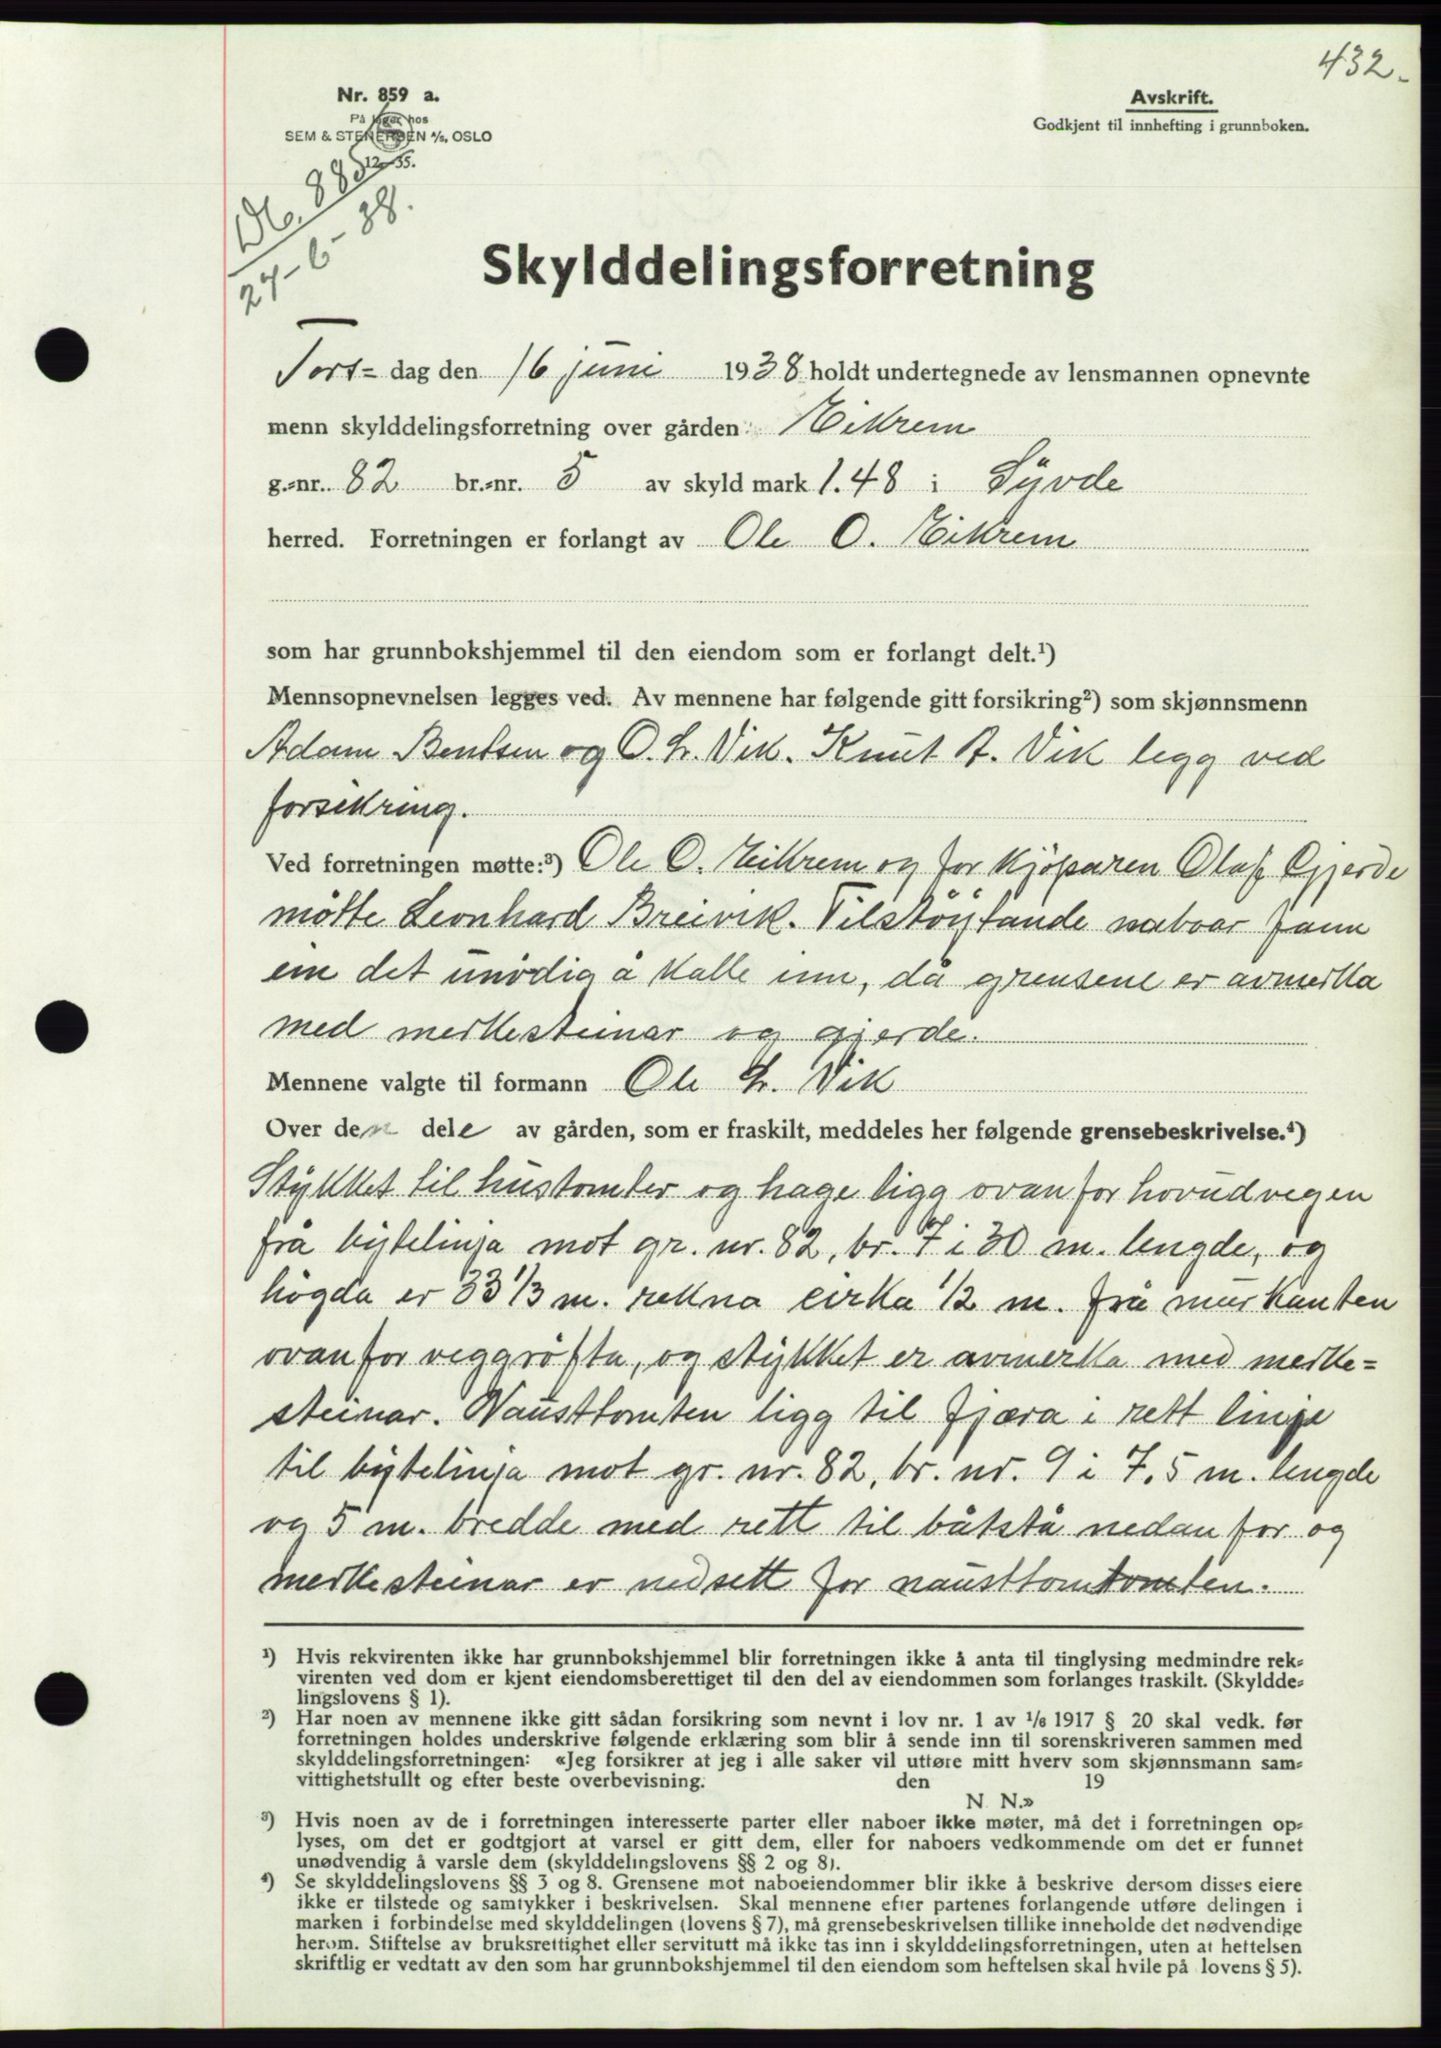 432.
Nr. 859 a.
På lager hos
SEM & STENERSEN A/S, OSLO
12-35.
Avskrift.
Godkjent til innhefting i grunnboken.
Db. 885
27-6-38.
Skylddelingsforretning
Tors= dag den 16 juni 1938 holdt undertegnede av lensmannen opnevnte
menn skylddelingsforretning over gården Eikrem
g.=nr. 82 br.=nr. 5 av skyld mark 1.48 i Syvde
herred. Forretningen er forlangt av Ole O. Eikrem
som har grunnbokshjemmel til den eiendom som er forlangt delt.¹)
Mennsopnevnelsen legges ved. Av mennene har følgende gitt forsikring²) som skjønnsmenn
Adam Bentsen og O. L. Vik. Knut A. Vik legg ved
forsikring.
Ved forretningen møtte:³) Ole O. Eikrem og for kjöparen Olaf Gjerde
møtte Leonhard Breivik. Tilstöytande naboar fann
ein det unödig å kalle inn, då grensene er avmerka
med merkesteinar og gjerde.
Mennene valgte til formann Ole L. Vik
Over den dele av gården, som er fraskilt, meddeles her følgende grensebeskrivelse.⁴)
Stykket til hustomter og hage ligg ovanfor hovudvegen
frå bytelinja mot gr. nr. 82, br. 7 i 30 m. lengde, og
högda er 33 1/3 m. rekna cirka 1/2 m. frå murkanten
ovanfor veggröfta, og stykket er avmerka med merke=
steinar. Nausttomten ligg til fjæra i rett linje
til bytelinja mot gr. nr. 82, br. nr. 9 i 7.5 m. lengde
og 5 m. bredde med rett til båtstå nedanfor og
merkesteinar er nedsett for nausttomtomten.
¹) Hvis rekvirenten ikke har grunnbokshjemmel blir forretningen ikke å anta til tinglysing medmindre rek=
virenten ved dom er kjent eiendomsberettiget til den del av eiendommen som forlanges fraskilt. (Skyldde=
lingslovens § 1).
²) Har noen av mennene ikke gitt sådan forsikring som nevnt i lov nr. 1 av 1/6 1917 § 20 skal vedk. før
forretningen holdes underskrive følgende erklæring som blir å sende inn til sorenskriveren sammen med
skylddelingsforretningen: «Jeg forsikrer at jeg i alle saker vil utføre mitt hverv som skjønnsmann sam=
vittighetsfullt og efter beste overbevisning. den 19
N N.»
³) Hvis noen av de i forretningen interesserte parter eller naboer ikke møter, må det i forretningen op=
lyses, om det er godtgjort at varsel er gitt dem, eller for naboers vedkommende om det er funnet
unødvendig å varsle dem (skylddelingslovens §§ 2 og 8).
⁴) Se skylddelingslovens §§ 3 og 8. Grensene mot naboeiendommer blir ikke å beskrive dersom disses eiere
ikke er tilstede og samtykker i beskrivelsen. Skal mennene efter partenes forlangende utføre delingen i
marken i forbindelse med skylddelingen (lovens § 7), må grensebeskrivelsen tillike inneholde det nødvendige
herom. Stiftelse av bruksrettighet eller servitutt må ikke tas inn i skylddelingsforretningen, uten at heftelsen
skriftlig er vedtatt av den som har grunnbokshjemmel til den eiendom som heftelsen skal hvile på lovens § 5).